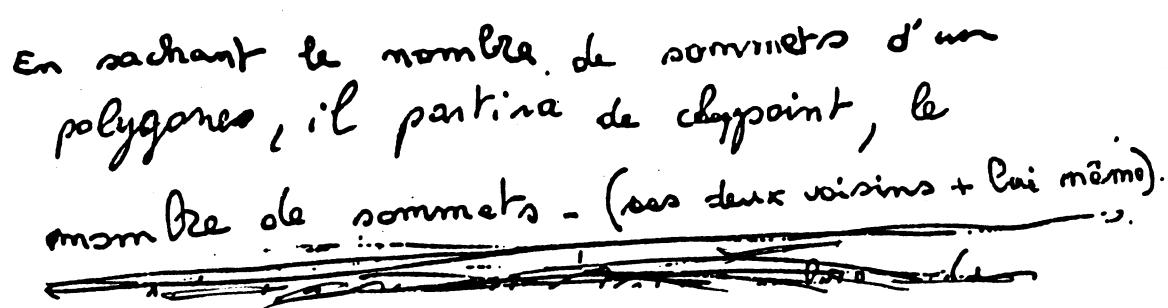 En sachant le nombre de sommets d'un
polygones, il partira de chqpoint, le
nombre de sommets - (ses deux voisins + lui même).